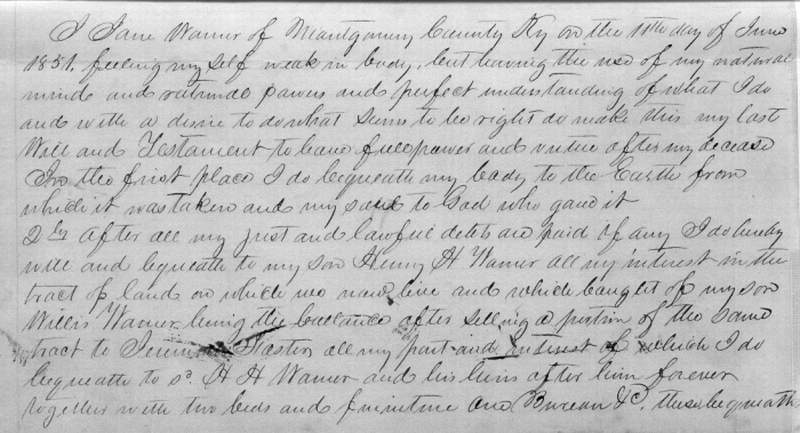 I Jane Warner of Montgomery County Ky on the 11th day of June
1851, feeling my self weak in body, but having the use of my natural
minde and rational powers and perfect understanding of what I do
and with a desire to do what seems to be right do make this my last
Will and Testament to have full power and virtue after my decease
In the first place I do bequeath my body to the Earth from
which it was taken and my soul to God who gave it
2ly After all my just and lawful debts are paid if any I do hereby
will and bequeath to my son Henry H Warner all my interest in the
tract of land on which we now live and which bought of my son
Willis Warner being the ballance after selling a portion of the same
tract to all my part and interest of which I do
bequeath to sd. H H Warner and his heirs after him forever
together with two beds and furniture one Bureau &c. these bequeath